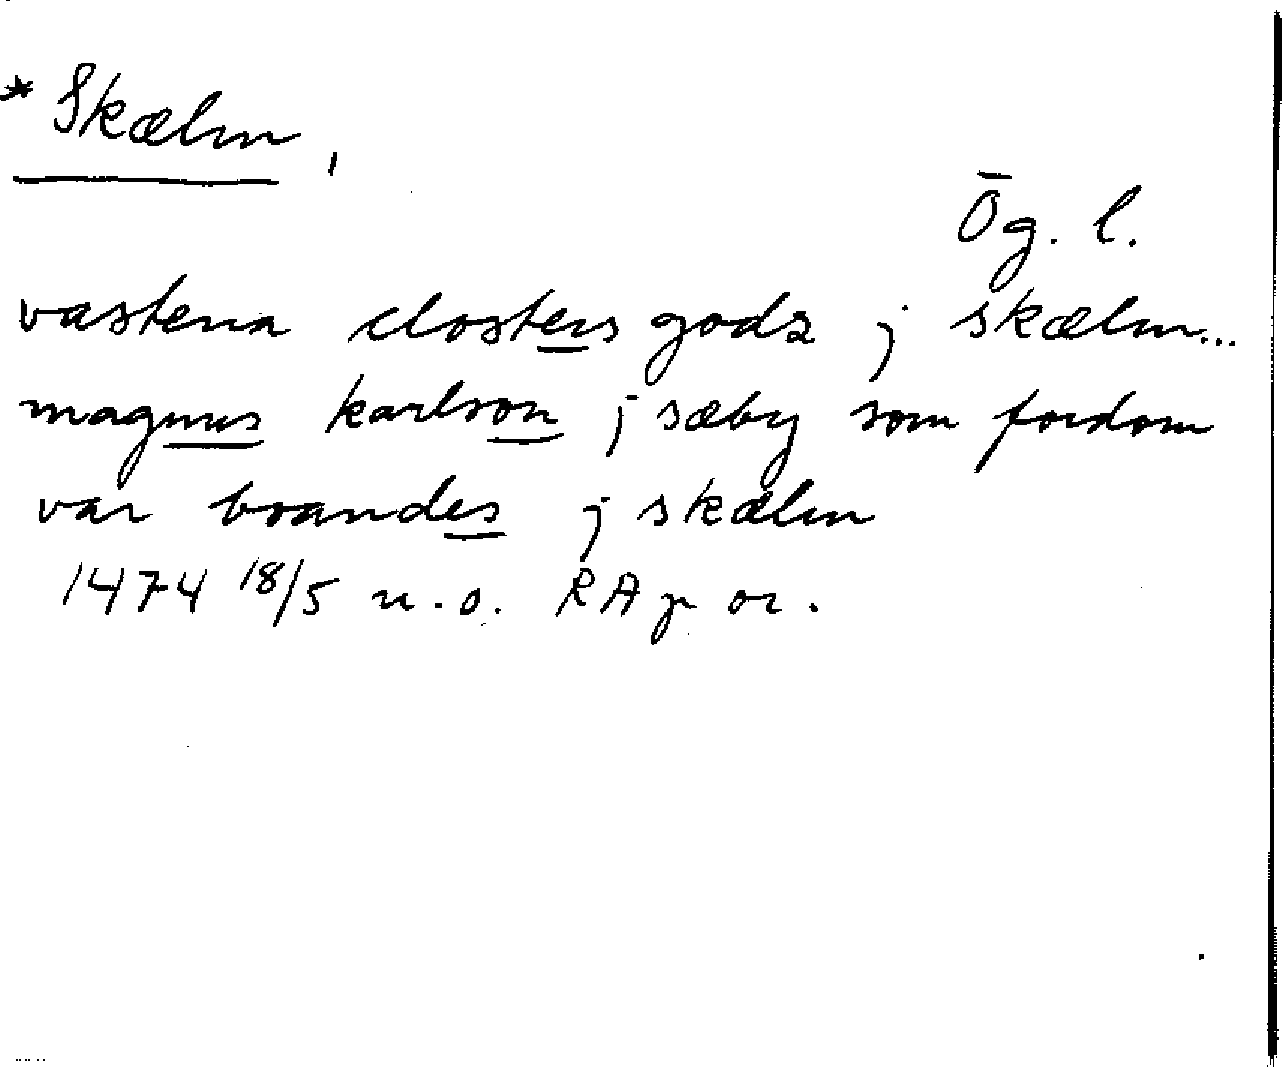 * Skælm,
Ög. l.
vastena closters godz j skælm...
magnus karlson j sæby som fordom
var boandes j skælm
1474 18/5 u.o. RAp or.